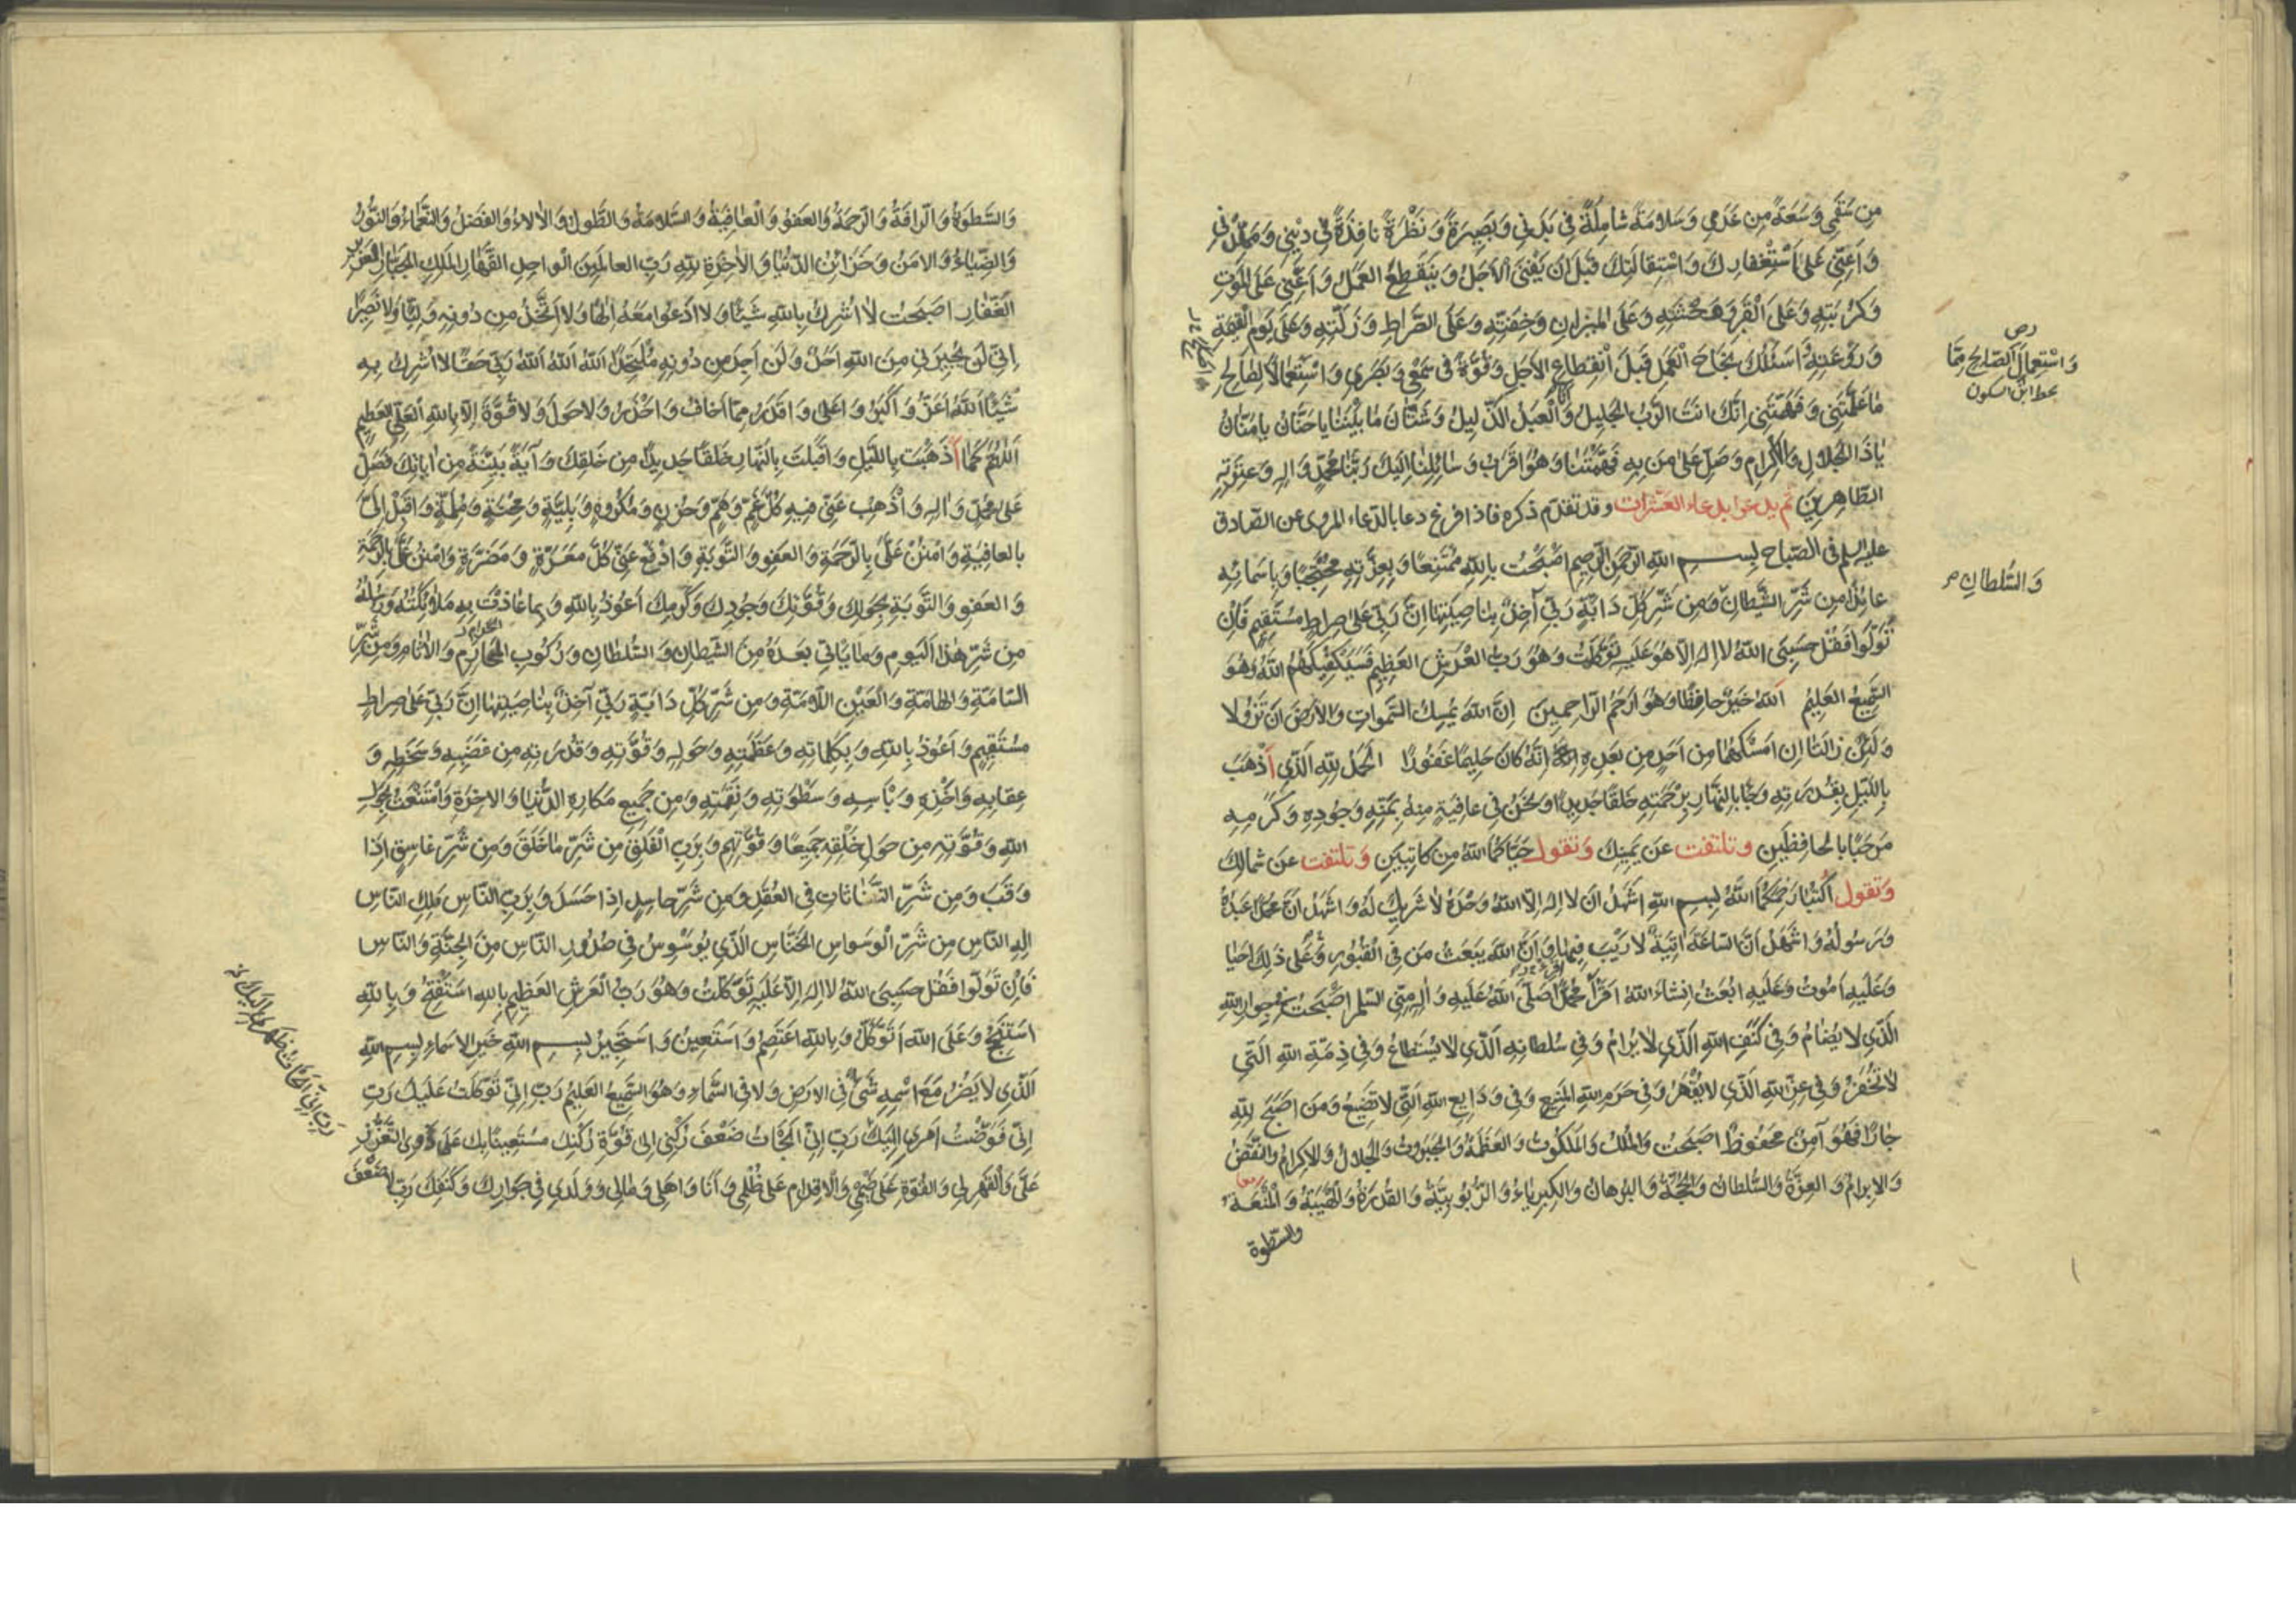 مِن سُقْمِي وَسَعَةً مِن عُدْمِي وَسَلامَةً شامِلَةً فِي بَدَنِي وَبَصِيرَةً وَنَظْرَةً نافِذَةً فِي دِيْنِي وَمَهِّدْنِي
وَاَعِنِّي عَلَى اسْتِغْفارِكَ وَاسْتِقالَتِكَ قَبْلَ اَنْ يَفْنَى الاَجَلُ وَيَنْقَطِعَ العَمَلُ وَاَعِنِّي عَلَى المَوْتِ
وَكُرْبَتِهِ وَعَلَى القَبْرِ وَوَحْشَتِهِ وَعَلَى المِيزانِ وَخِفَّتِهِ وَعَلَى الصِّراطِ وَزَلَّتِهِ وَعَلَى يَوْمِ القِيمَةِ
وَرَوْعَتِهِ وَاَسْئَلُكَ نَجاحَ العَمَلِ قَبْلَ انْقِطاعِ الاَجَلِ وَقُوَّةً فِي سَمْعِي وَبَصَرِي وَاسْتِعْمالاً لِصالِحِ
ما عَلَّمْتَنِي وَفَهَّمْتَنِي اِنَّكَ اَنْتَ الرَّبُّ الجَلِيلُ وَاَنَا العَبْدُ الذَّلِيلُ وَشَتَّانَ ما بَيْنَنا يا حَنَّانُ يا مَنَّانُ
يا ذَا الجَلالِ وَالاِكْرامِ وَصَلِّ عَلى مَنْ بِهِ فَهَّمْتَنا وَهُوَ اَقْرَبُ وَسائِلِنا اِلَيْكَ رَبَّنا مُحَمَّدٍ وَالِهِ وَعِتْرَتِهِ
الطّاهِرِينَ ثم يدعو بدعاء العشرات وقد تقدّم ذكره فاذا فرغ دعا بالدّعاء المروى عن الصّادق
عليه السلم فى الصّباح بِسْمِ اللهِ الرَّحْمنِ الرَّحِيمِ اَصْبَحْتُ بِاللهِ مُمْتَنِعًا وَبِعِزَّتِهِ مُحْتَجِبًا وَبِاَسْمائِهِ
عائِذًا مِن شَرِّ الشَّيْطانِ وَمِن شَرِّ كُلِّ دابَّةٍ رَبِّي آخِذٌ بِناصِيَتِها اِنَّ رَبِّي عَلى صِراطٍ مُسْتَقِيمٍ فَاِنْ
تَوَلَّوْا فَقُلْ حَسْبِيَ اللهُ لا اِلهَ اِلاَّ هُوَ عَلَيْهِ تَوَكَّلْتُ وَهُوَ رَبُّ العَرْشِ العَظِيمِ فَسَيَكْفِيكَهُمُ اللهُ وَهُوَ
السَّمِيعُ العَلِيمُ اَللهُ خَيْرٌ حافِظًا وَهُوَ اَرْحَمُ الرّاحِمِينَ اِنَّ اللهَ يُمْسِكُ السَّمواتِ وَالاَرْضَ اَنْ تَزُولا
وَلَئِنْ زالَتا اِنْ اَمْسَكَهُما مِن اَحَدٍ مِن بَعْدِهِ اِنَّهُ كانَ حَلِيمًا غَفُورًا الحَمْدُ لِلّهِ الَّذِي اَذْهَبَ
بِاللَّيْلِ بِقُدْرَتِهِ وَجاءَ بِالنَّهارِ بِرَحْمَتِهِ خَلْقًا جَدِيدًا وَنَحْنُ فِي عافِيَةٍ مِنْهُ بِمَنِّهِ وَجُودِهِ وَكَرَمِهِ
مَرْحَبًا بِالحافِظَينِ وتلتفت عَن يَمِينِكَ وَتقول حَيّاكُما اللهُ مِن كاتِبَيْنِ وَتلتفت عَن شمالِكَ
وَتقول اُكْتُبا رَحِمَكُما اللهُ بِسْمِ اللهِ اَشْهَدُ اَنْ لا اِلهَ اِلاَّ اللهُ وَحْدَهُ لا شَرِيكَ لَهُ وَاَشْهَدُ اَنَّ مُحَمَّدًا عَبْدُهُ
وَرَسُولُهُ وَاَشْهَدُ اَنَّ السّاعَةَ آتِيَةٌ لا رَيْبَ فِيها وَاَنَّ اللهَ يَبْعَثُ مَن فِي القُبُورِ وَعَلى ذلِكَ اَحْيا
وَعَلَيْهِ اَمُوتُ وَعَلَيْهِ اُبْعَثُ اِنْشاءَ اللهُ اِقْرَأا مُحَمَّدًا صَلَّى اللهُ عَلَيْهِ وَالِهِ مِنِّي السَّلمَ اَصْبَحْتُ فِي جِوارِ اللهِ
الَّذِي لا يُضامُ وَفِي كَنَفِ اللهِ الَّذِي لا يُرامُ وَفِي سُلْطانِهِ الَّذِي لا يُسْتَطاعُ وَفِي ذِمَّةِ اللهِ الَّتِي
لا تُخْفَرُ وَفِي عِزِّ اللهِ الَّذِي لا يُقْهَرُ وَفِي حَرَمِ اللهِ المَنِيعِ وَفِي وَدائِعِ اللهِ الَّتِي لا تَضِيعُ وَمَن اَصْبَحَ لِلّهِ
جارًا فَهُوَ آمِنٌ مَحْفُوظٌ اَصْبَحْتُ وَالمُلْكُ وَالمَلَكُوتُ وَالعَظَمَةُ وَالجَبَرُوتُ وَالجَلالُ وَالاِكْرامُ وَالنَّقْضُ
وَالاِبْرامُ وَالعِزَّةُ وَالسُّلْطانُ وَالحُجَّةُ وَالبُرْهانُ وَالكِبْرِياءُ وَالرُّبُوبِيَّةُ وَالقُدْرَةُ وَالهَيْبَةُ وَالمَنْعَةُ
والسّطوة
وَاسْتِعمالَ الصّالِحِ مِمّا
بخط ابن السكون
وَالسُّلطانِ
وَالسَّطْوَةُ وَالرَّافَةُ وَالرَّحْمَةُ وَالعَفْوُ وَالعافِيَةُ وَالسَّلامَةُ وَالطَّوْلُ وَالالاءُ وَالفَضْلُ وَالنَّعْماءُ وَالنُّورُ
وَالضِّياءُ وَالاَمْنُ وَخَزائِنُ الدُّنْيا وَالاخِرَةِ لِلّهِ رَبِّ العالَمِينَ الواحِدِ القَهّارِ المَلِكِ الجَبّارِ العَزِيزِ
الغَفّارِ اَصْبَحْتُ لا اُشْرِكُ بِاللهِ شَيْئًا وَلا اَدْعُوا مَعَهُ اِلهًا وَلا اَتَّخِذُ مِن دُونِهِ وَلِيًّا وَلا نَصِيرًا
اِنِّي لَنْ يُجِيرَنِي مِنَ اللهِ اَحَدٌ وَلَنْ اَجِدَ مِن دُونِهِ مُلْتَحَدًا اَللهُ اَللهُ اَللهُ رَبِّي حَقًّا لا اُشْرِكُ بِهِ
شَيْئًا اَللهُ اَعَزُّ وَاَكْبَرُ وَاَعْلى وَاَقْدَرُ مِمّا اَخافُ وَاَحْذَرُ وَلا حَوْلَ وَلا قُوَّةَ اِلاَّ بِاللهِ العَلِيِّ العَظِيمِ
اَللّهُمَّ كَما اَذْهَبْتَ بِاللَّيْلِ وَاَقْبَلْتَ بِالنَّهارِ خَلْقًا جَدِيدًا مِن خَلْقِكَ وَآيَةً بَيِّنَةً مِن اياتِكَ فَصَلِّ
عَلى مُحَمَّدٍ وَالِهِ وَاَذْهِبْ عَنِّي فِيهِ كُلَّ غَمٍّ وَهَمٍّ وَحُزْنٍ وَمَكْرُوهٍ وَبَلِيَّةٍ وَمِحْنَةٍ وَمُلِمَّةٍ وَاَقْبِلْ اِلَيَّ
بِالعافِيَةِ وَامْنُنْ عَلَيَّ بِالرَّحْمَةِ وَالعَفْوِ وَالتَّوْبَةِ وَادْفَعْ عَنِّي كُلَّ مَعَرَّةٍ وَمَضَرَّةٍ وَامْنُنْ عَلَيَّ بِالرَّحْمَةِ
وَالعَفْوِ وَالتَّوْبَةِ بِحَوْلِكَ وَقُوَّتِكَ وَجُودِكَ وَكَرَمِكَ اَعُوذُ بِاللهِ وَبِما عاذَتْ بِهِ مَلائِكَتُهُ وَرُسُلُهُ
مِن شَرِّ هذَا اليَوْمِ وَما يَاْتِي بَعْدَهُ مِنَ الشَّيْطانِ وَالسُّلْطانِ وَرُكُوبِ المَحارِمِ وَالاثامِ وَمِن شَرِّ
السّامَّةِ وَالهامَّةِ وَالعَيْنِ اللاّمَّةِ وَمِن شَرِّ كُلِّ دابَّةٍ رَبِّي آخِذٌ بِناصِيَتِها اِنَّ رَبِّي عَلى صِراطٍ
مُسْتَقِيمٍ وَاَعُوذُ بِاللهِ وَبِكَلِماتِهِ وَعَظَمَتِهِ وَحَوْلِهِ وَقُوَّتِهِ وَقُدْرَتِهِ مِن غَضَبِهِ وَسَخَطِهِ وَ
عِقابِهِ وَاَخْذِهِ وَبَاْسِهِ وَسَطْوَتِهِ وَنَقِمَتِهِ وَمِن جَمِيعِ مَكارِهِ الدُّنْيا وَالاخِرَةِ وَامْتَنَعْتُ بِحَوْلِ
اللهِ وَقُوَّتِهِ مِن حَوْلِ خَلْقِهِ جَمِيعًا وَقُوَّتِهِم وَبِرَبِّ الفَلَقِ مِن شَرِّ ما خَلَقَ وَمِن شَرِّ غاسِقٍ اِذا
وَقَبَ وَمِن شَرِّ النَّفّاثاتِ فِي العُقَدِ وَمِن شَرِّ حاسِدٍ اِذا حَسَدَ وَبِرَبِّ النّاسِ مَلِكِ النّاسِ
اِلهِ النّاسِ مِن شَرِّ الوَسْواسِ الخَنّاسِ الَّذِي يُوَسْوِسُ فِي صُدُورِ النّاسِ مِنَ الجِنَّةِ وَالنّاسِ
فَاِنْ تَوَلَّوْا فَقُلْ حَسْبِيَ اللهُ لا اِلهَ اِلاَّ عَلَيْهِ تَوَكَّلْتُ وَهُوَ رَبُّ العَرْشِ العَظِيمِ بِاللهِ اَسْتَفْتِحُ وَبِاللهِ
اَسْتَنْجِحُ وَعَلَى اللهِ اَتَوَكَّلُ وَبِاللهِ اَعْتَصِمُ وَاَسْتَعِينُ وَاَسْتَجِيرُ بِسْمِ اللهِ خَيْرِ الاَسْماءِ بِسْمِ اللهِ
الَّذِي لا يَضُرُّ مَعَ اسْمِهِ شَيْءٌ فِي الاَرْضِ وَلا فِي السَّماءِ وَهُوَ السَّمِيعُ العَلِيمُ رَبِّ اِنِّي تَوَكَّلْتُ عَلَيْكَ رَبِّ
اِنِّي فَوَّضْتُ اَمْرِي اِلَيْكَ رَبِّ اِنِّي اَلْجَاْتُ ضَعْفَ رُكْنِي اِلى قُوَّةِ رُكْنِكَ مُسْتَعِينًا بِكَ عَلى ذَوِى التَّعَزُّزِ
عَلَيَّ وَالقَهْرِ لِي وَالقُوَّةِ عَلى ضَيْمِي وَالاِقْدامِ عَلى ظُلْمِي وَاَنَا وَاَهْلِي وَمالِي وَوَلَدِي فِي جِوارِكَ وَكَنَفِكَ رَبِّ
رَبِّ اِنِّي اَلْجَاْتُ ظَهْرِي اِلَيْكَ